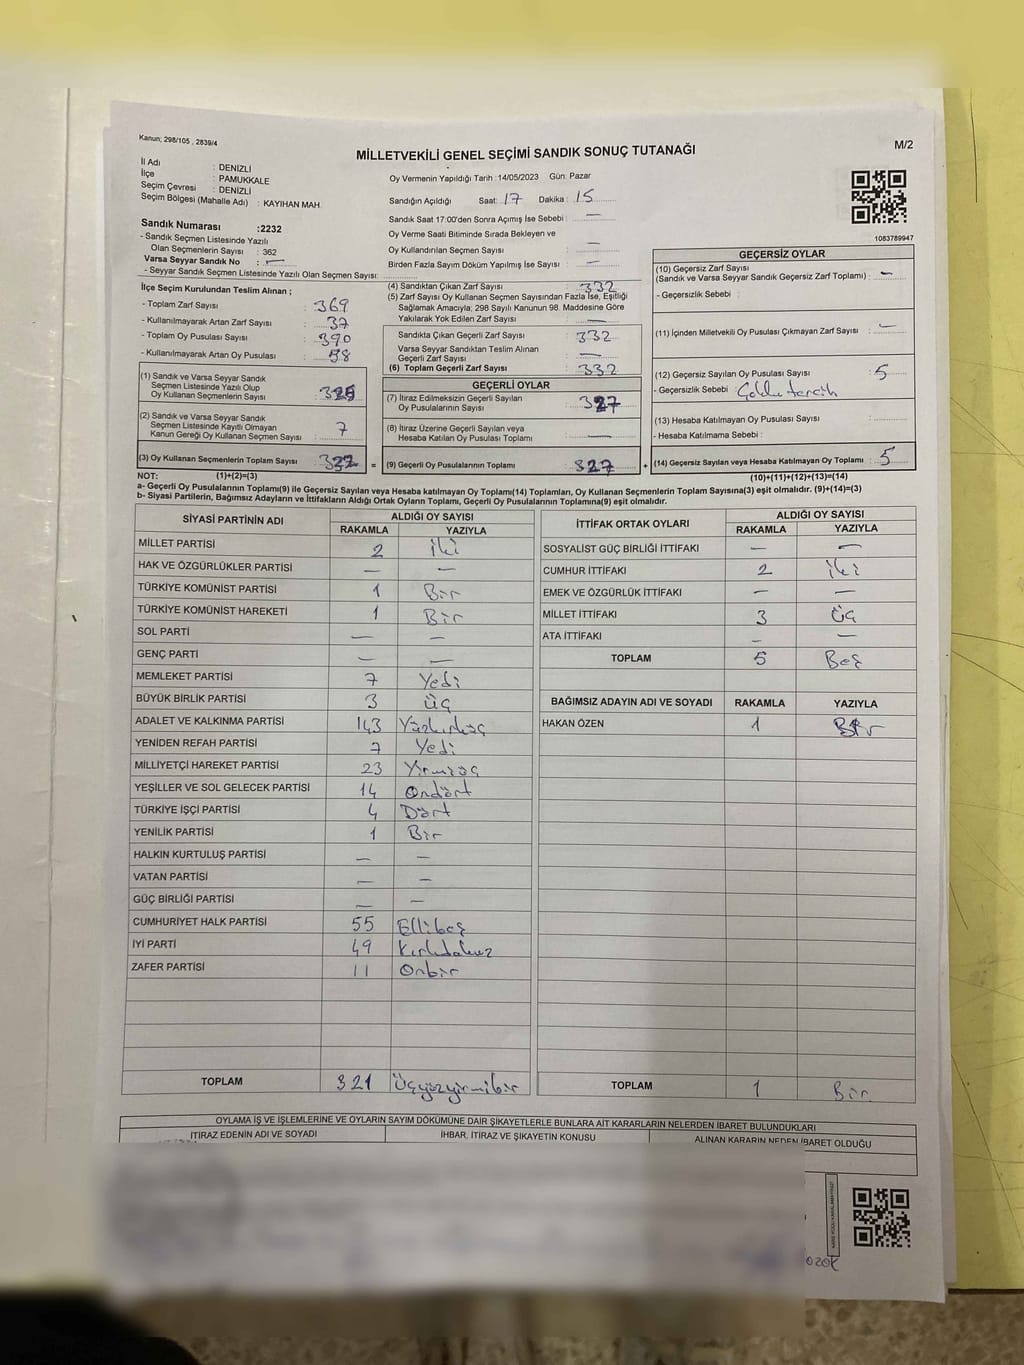 Kanun; 298/105 , 2839/4
MİLLETVEKİLİ GENEL SEÇİMİ SANDIK SONUÇ TUTANAĞI
M/2
İl Adı : DENİZLİ
İlçe : PAMUKKALE
Seçim Çevresi : DENİZLİ
Seçim Bölgesi (Mahalle Adı) : KAYIHAN MAH.
Oy Vermenin Yapıldığı Tarih : 14/05/2023 Gün: Pazar
Sandığın Açıldığı Saat: 17 Dakika : 15
Sandık Saat 17:00'den Sonra Açımış İse Sebebi : —
Oy Verme Saati Bitiminde Sırada Bekleyen ve
Oy Kullandırılan Seçmen Sayısı : —
Birden Fazla Sayım Döküm Yapılmış İse Sayısı : —
1083789947
Sandık Numarası :2232
- Sandık Seçmen Listesinde Yazılı
Olan Seçmenlerin Sayısı : 362
Varsa Seyyar Sandık No : —
- Seyyar Sandık Seçmen Listesinde Yazılı Olan Seçmen Sayısı:
İlçe Seçim Kurulundan Teslim Alınan ;
- Toplam Zarf Sayısı : 369
- Kullanılmayarak Artan Zarf Sayısı : 37
- Toplam Oy Pusulası Sayısı : 390
- Kullanılmayarak Artan Oy Pusulası : 58
(1) Sandık ve Varsa Seyyar Sandık
Seçmen Listesinde Yazılı Olup
Oy Kullanan Seçmenlerin Sayısı : 325
(2) Sandık ve Varsa Seyyar Sandık
Seçmen Listesinde Kayıtlı Olmayan
Kanun Gereği Oy Kullanan Seçmen Sayısı : 7
(3) Oy Kullanan Seçmenlerin Toplam Sayısı : 332 =
(4) Sandıktan Çıkan Zarf Sayısı : 332
(5) Zarf Sayısı Oy Kullanan Seçmen Sayısından Fazla İse, Eşitliği
Sağlamak Amacıyla; 298 Sayılı Kanunun 98. Maddesine Göre
Yakılarak Yok Edilen Zarf Sayısı : —
Sandıkta Çıkan Geçerli Zarf Sayısı : 332
Varsa Seyyar Sandıktan Teslim Alınan
Geçerli Zarf Sayısı : —
(6) Toplam Geçerli Zarf Sayısı : 332
GEÇERLİ OYLAR
(7) İtiraz Edilmeksizin Geçerli Sayılan
Oy Pusulalarının Sayısı : 327
(8) İtiraz Üzerine Geçerli Sayılan veya
Hesaba Katılan Oy Pusulası Toplamı : —
(9) Geçerli Oy Pusulalarının Toplamı : 327 +
GEÇERSİZ OYLAR
(10) Geçersiz Zarf Sayısı
(Sandık ve Varsa Seyyar Sandık Geçersiz Zarf Toplamı) : —
- Geçersizlik Sebebi :
(11) İçinden Milletvekili Oy Pusulası Çıkmayan Zarf Sayısı : —
(12) Geçersiz Sayılan Oy Pusulası Sayısı : 5
- Geçersizlik Sebebi : Çoklu tercih
(13) Hesaba Katılmayan Oy Pusulası Sayısı :
- Hesaba Katılmama Sebebi :
(14) Geçersiz Sayılan veya Hesaba Katılmayan Oy Toplamı : 5
NOT: (1)+(2)=(3) (10)+(11)+(12)+(13)=(14)
a- Geçerli Oy Pusulalarının Toplamı(9) ile Geçersiz Sayılan veya Hesaba katılmayan Oy Toplamı(14) Toplamları, Oy Kullanan Seçmenlerin Toplam Sayısına(3) eşit olmalıdır. (9)+(14)=(3)
b- Siyasi Partilerin, Bağımsız Adayların ve İttifakların Aldığı Ortak Oyların Toplamı, Geçerli Oy Pusulalarının Toplamına(9) eşit olmalıdır.
SİYASİ PARTİNİN ADI ALDIĞI OY SAYISI
RAKAMLA YAZIYLA
MİLLET PARTİSİ 2 iki
HAK VE ÖZGÜRLÜKLER PARTİSİ — —
TÜRKİYE KOMÜNİST PARTİSİ 1 Bir
TÜRKİYE KOMÜNİST HAREKETİ 1 Bir
SOL PARTİ — —
GENÇ PARTİ — —
MEMLEKET PARTİSİ 7 Yedi
BÜYÜK BİRLİK PARTİSİ 3 üç
ADALET VE KALKINMA PARTİSİ 143 Yüzkırküç
YENİDEN REFAH PARTİSİ 7 Yedi
MİLLİYETÇİ HAREKET PARTİSİ 23 Yirmiüç
YEŞİLLER VE SOL GELECEK PARTİSİ 14 Ondört
TÜRKİYE İŞÇİ PARTİSİ 4 Dört
YENİLİK PARTİSİ 1 Bir
HALKIN KURTULUŞ PARTİSİ — —
VATAN PARTİSİ — —
GÜÇ BİRLİĞİ PARTİSİ — —
CUMHURİYET HALK PARTİSİ 55 Ellibeş
İYİ PARTİ 49 Kırkdokuz
ZAFER PARTİSİ 11 Onbir
TOPLAM 321 Üçyüzyirmibir
İTTİFAK ORTAK OYLARI ALDIĞI OY SAYISI
RAKAMLA YAZIYLA
SOSYALİST GÜÇ BİRLİĞİ İTTİFAKI — —
CUMHUR İTTİFAKI 2 iki
EMEK VE ÖZGÜRLÜK İTTİFAKI — —
MİLLET İTTİFAKI 3 Üç
ATA İTTİFAKI — —
TOPLAM 5 Beş
BAĞIMSIZ ADAYIN ADI VE SOYADI RAKAMLA YAZIYLA
HAKAN ÖZEN 1 Bir
TOPLAM 1 Bir
OYLAMA İŞ VE İŞLEMLERİNE VE OYLARIN SAYIM DÖKÜMÜNE DAİR ŞİKAYETLERLE BUNLARA AİT KARARLARIN NELERDEN İBARET BULUNDUKLARI
İTİRAZ EDENİN ADI VE SOYADI İHBAR, İTİRAZ VE ŞİKAYETİN KONUSU ALINAN KARARIN NEDEN İBARET OLDUĞU